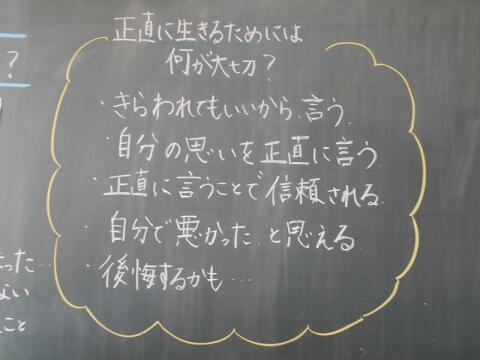 正直に生きるためには
何が大切？
・きらわれてもいいから、言う
・自分の思いを正直に言う
・正直に言うことで信頼される
・自分で悪かった と思える
・後悔するかも…
？
った…
ない
こと